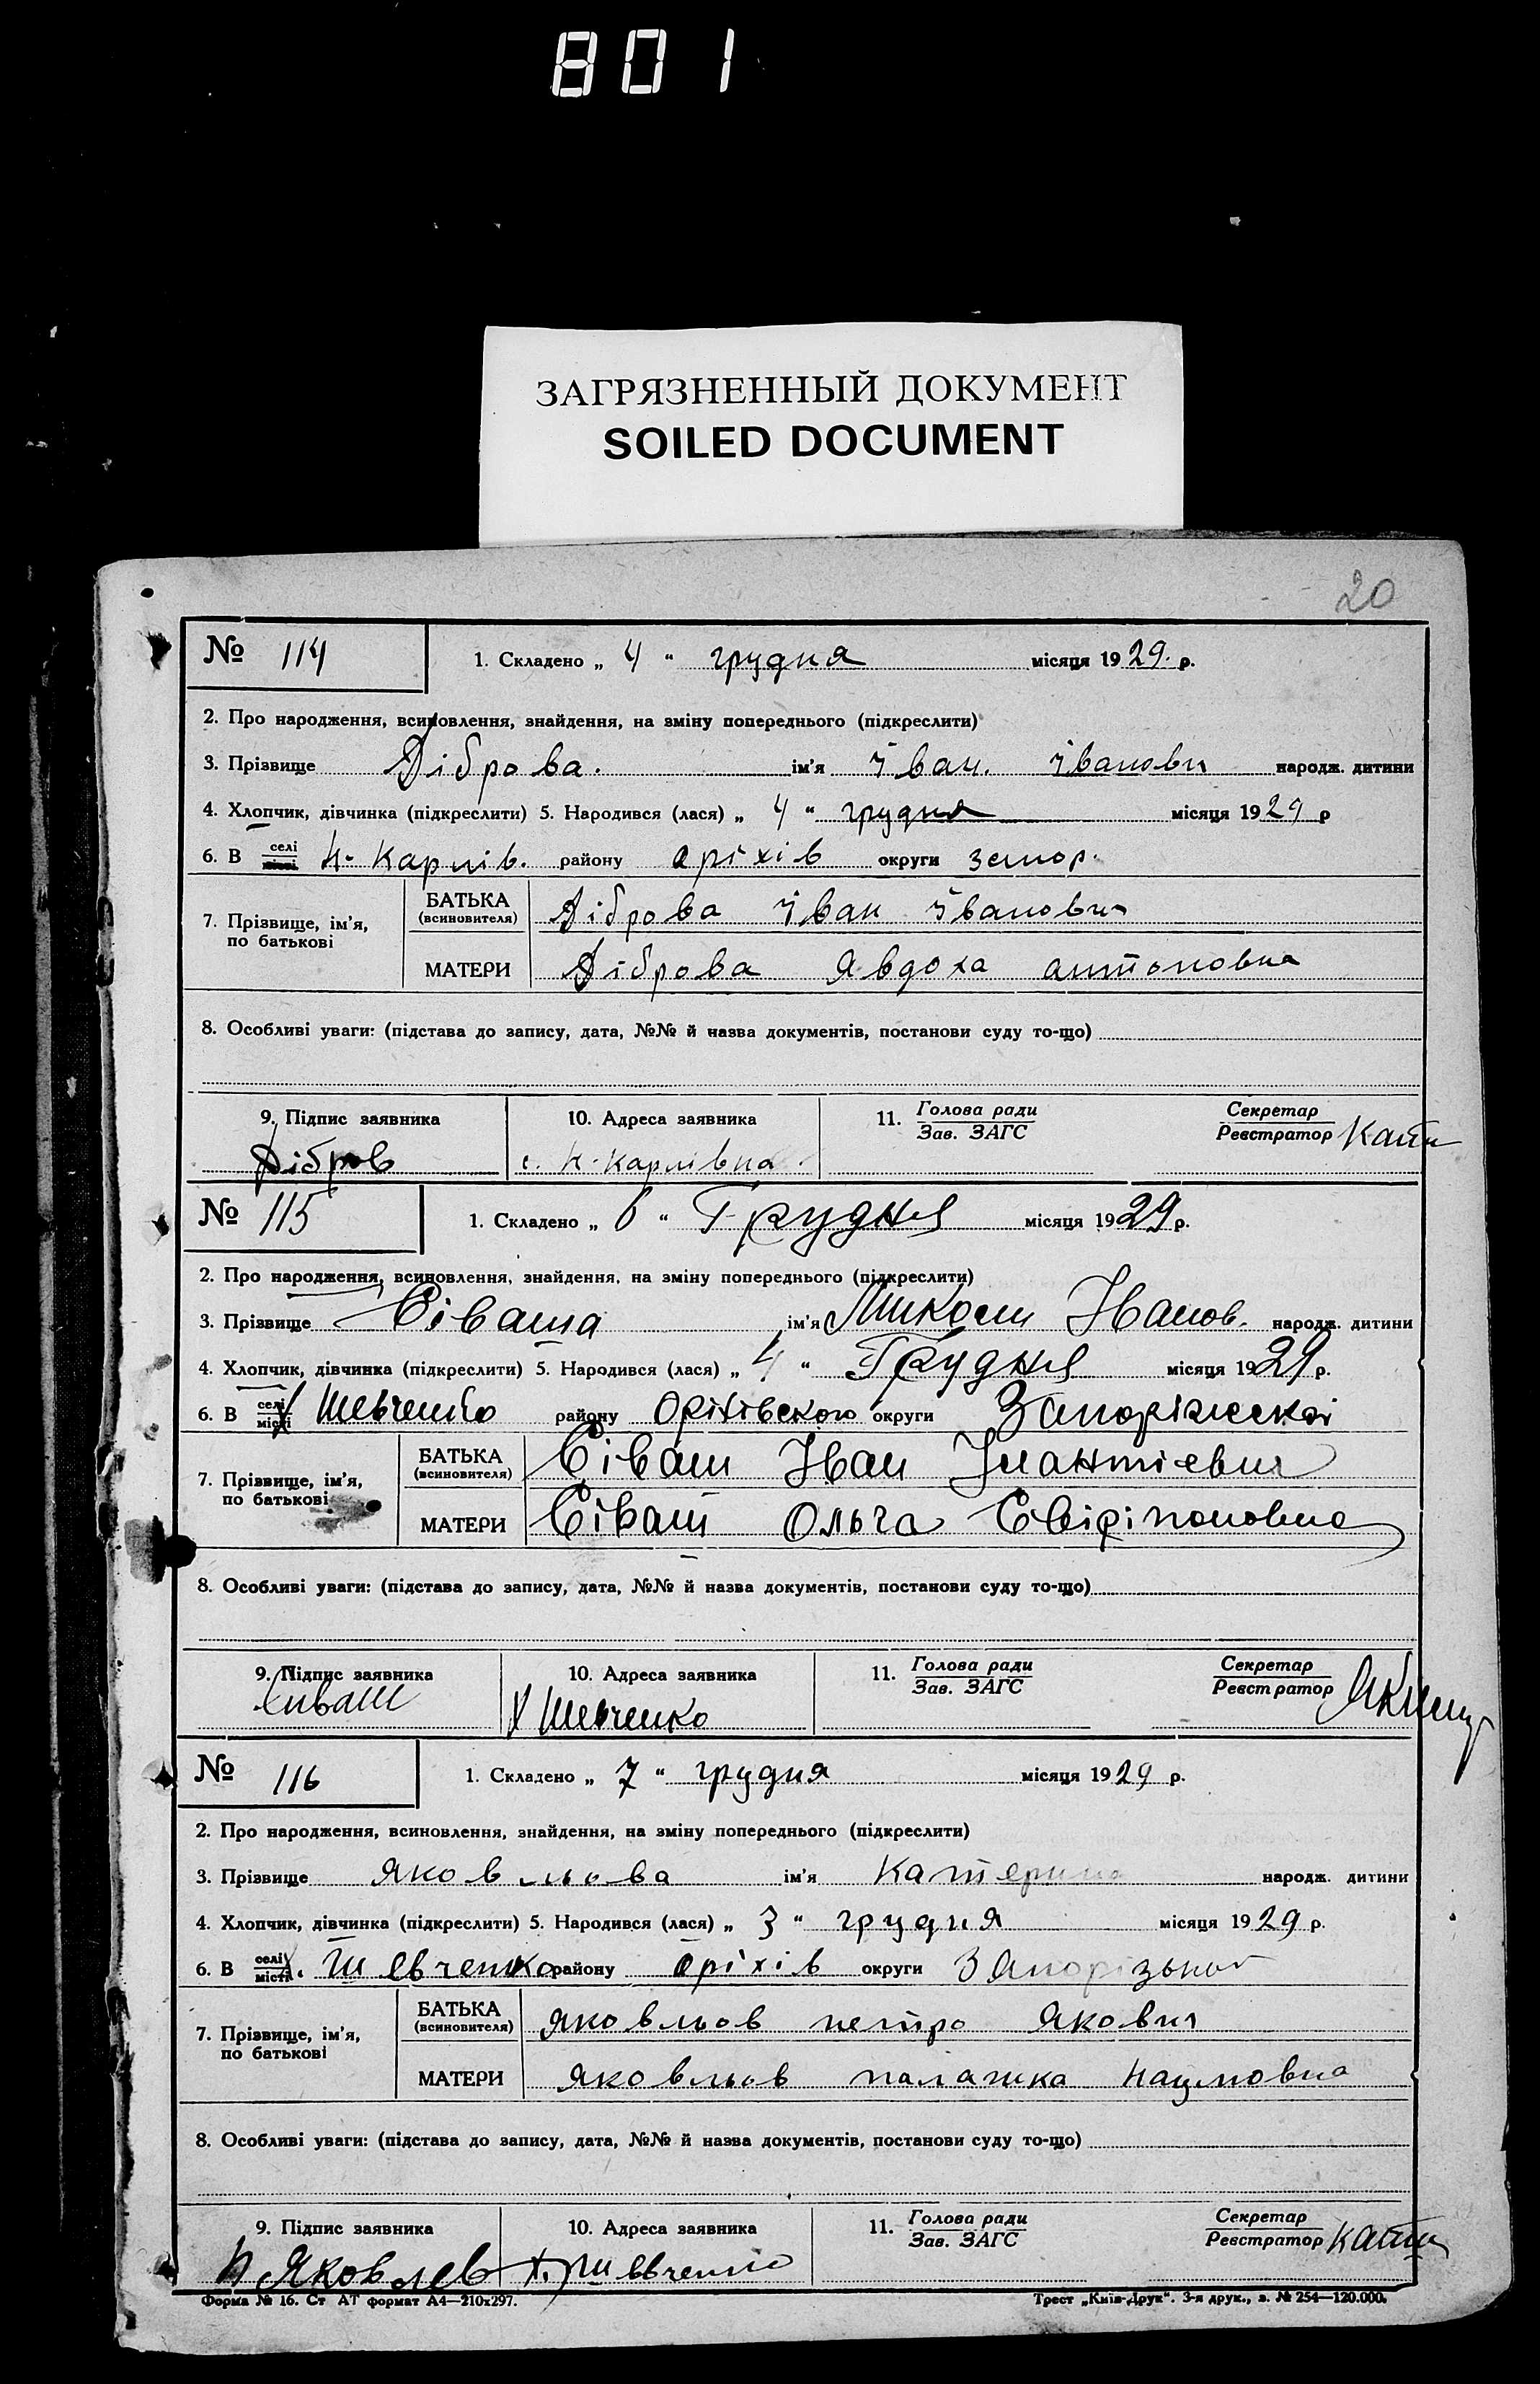 801
ЗАГРЯЗНЕННЫЙ ДОКУМЕНТ
SOILED DOCUMENT
20
№ 114 1. Складено „ 4 “ грудня місяця 1929. р.
2. Про народження, всиновлення, знайдення, на зміну попереднього (підкреслити)
3. Прізвище Діброва. ім'я Іван. Іванович народж. дитини
4. Хлопчик, дівчинка (підкреслити) 5. Народився (лася) „ 4 “ грудня місяця 1929 р
6. В селі місті Н-Карлів. району Оріхів округи запор.
7. Прізвище, ім'я, по батькові БАТЬКА (всиновителя) Діброва Іван Іванович
МАТЕРИ Діброва Явдоха Антоновна
8. Особливі уваги: (підстава до запису, дата, №№ й назва документів, постанови суду то-що)
9. Підпис заявника 10. Адреса заявника 11. Голова ради Зав. ЗАГС Секретар Реєстратор
Дібров с. Н-Карлівна
№ 115 1. Складено „ 6 “ Грудня місяця 1929 р.
2. Про народження, всиновлення, знайдення, на зміну попереднього (підкреслити)
3. Прізвище Сіваша ім'я Миколи Іванов. народж. дитини
4. Хлопчик, дівчинка (підкреслити) 5. Народився (лася) „ 4 “ Грудня місяця 1929 р.
6. В селі місті Х Шевченко району Оріхівского округи Запоріжскоі
7. Прізвище, ім'я, по батькові БАТЬКА (всиновителя) Сіваш Іван
МАТЕРИ Сіваш Ольга
8. Особливі уваги: (підстава до запису, дата, №№ й назва документів, постанови суду то-що)
9. Підпис заявника 10. Адреса заявника 11. Голова ради Зав. ЗАГС Секретар Реєстратор
Сиваш Х Шевченко
№ 116 1. Складено „ 7 “ грудня місяця 1929 р.
2. Про народження, всиновлення, знайдення, на зміну попереднього (підкреслити)
3. Прізвище Яковльова ім'я Катерина народж. дитини
4. Хлопчик, дівчинка (підкреслити) 5. Народився (лася) „ 3 “ грудня місяця 1929 р.
6. В селі місті Шевченко району Оріхів округи
7. Прізвище, ім'я, по батькові БАТЬКА (всиновителя) Яковльов Петро Якович
МАТЕРИ Яковльов Палажка Наумовна
8. Особливі уваги: (підстава до запису, дата, №№ й назва документів, постанови суду то-що)
9. Підпис заявника 10. Адреса заявника 11. Голова ради Зав. ЗАГС Секретар Реєстратор
П Яковлев х. Шевченко
Форма № 16. Ст АТ формат А4—210х297. Трест „Київ-Друк“. 3-я друк., з. № 254—120.000.